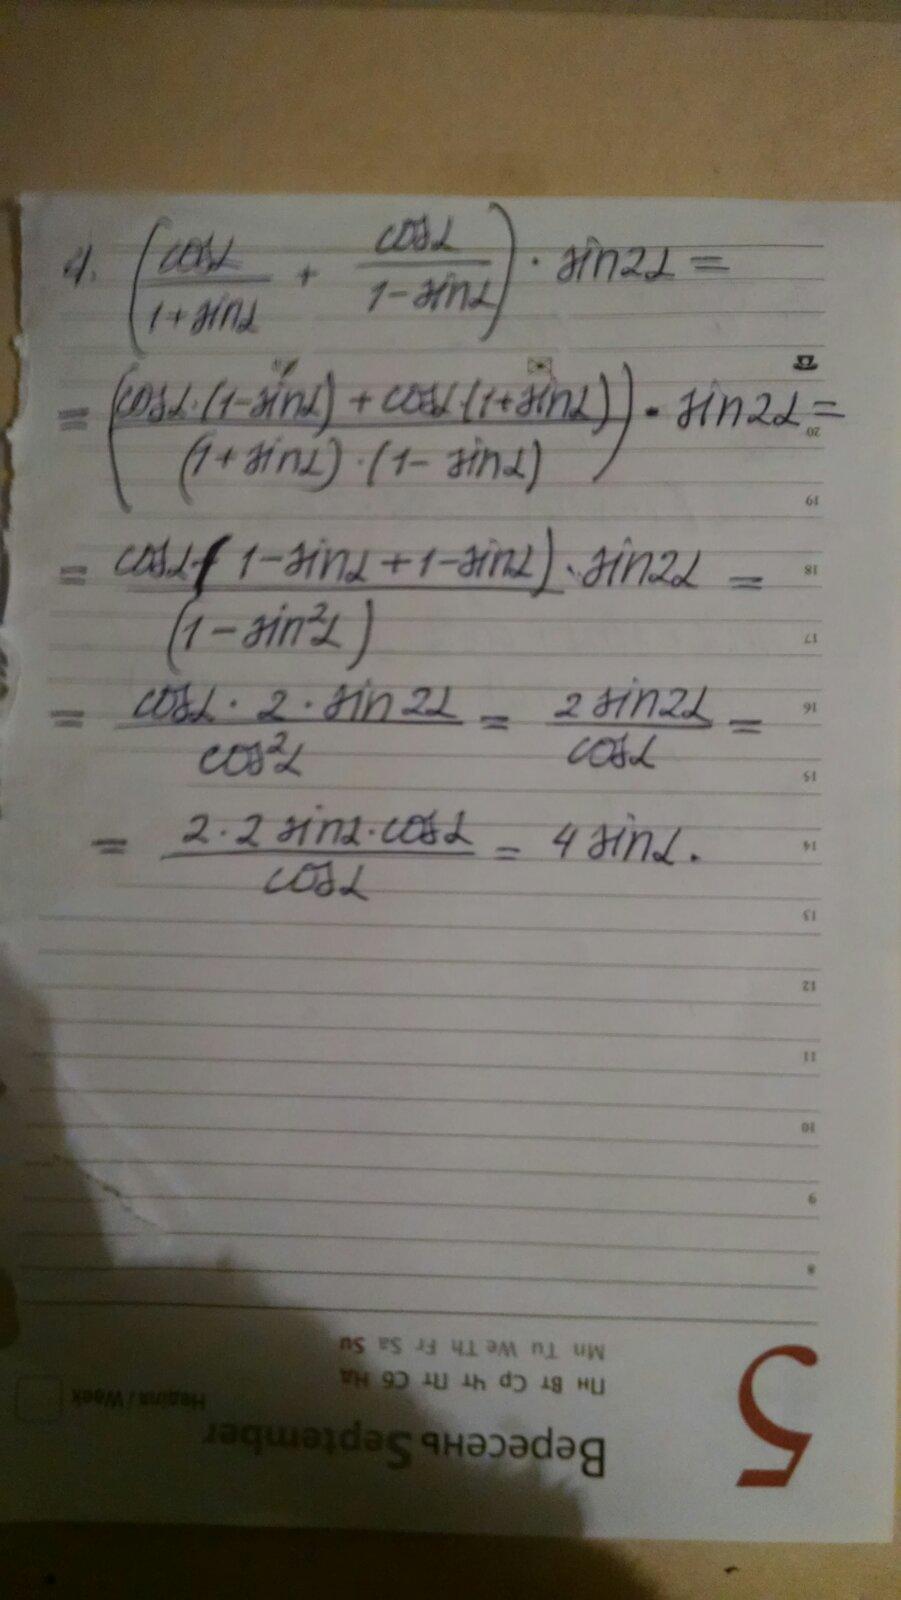 4. (cosα/(1+sinα) + cosα/(1-sinα)) · sin2α =
= (cosα·(1-sinα)+cosα·(1+sinα))/((1+sinα)·(1-sinα)) · sin2α =
= cosα·(1-sinα+1-sinα)·sin2α/(1-sin²α) =
= cosα·2·sin2α/cos²α = 2sin2α/cosα =
= 2·2sinα·cosα/cosα = 4sinα.
20
19
18
17
16
15
14
13
12
11
10
9
8
5
Mn Tu We Th Fr Sa Su
Пн Вт Ср Чт Пт Сб Нд
Вересень September
/ Week